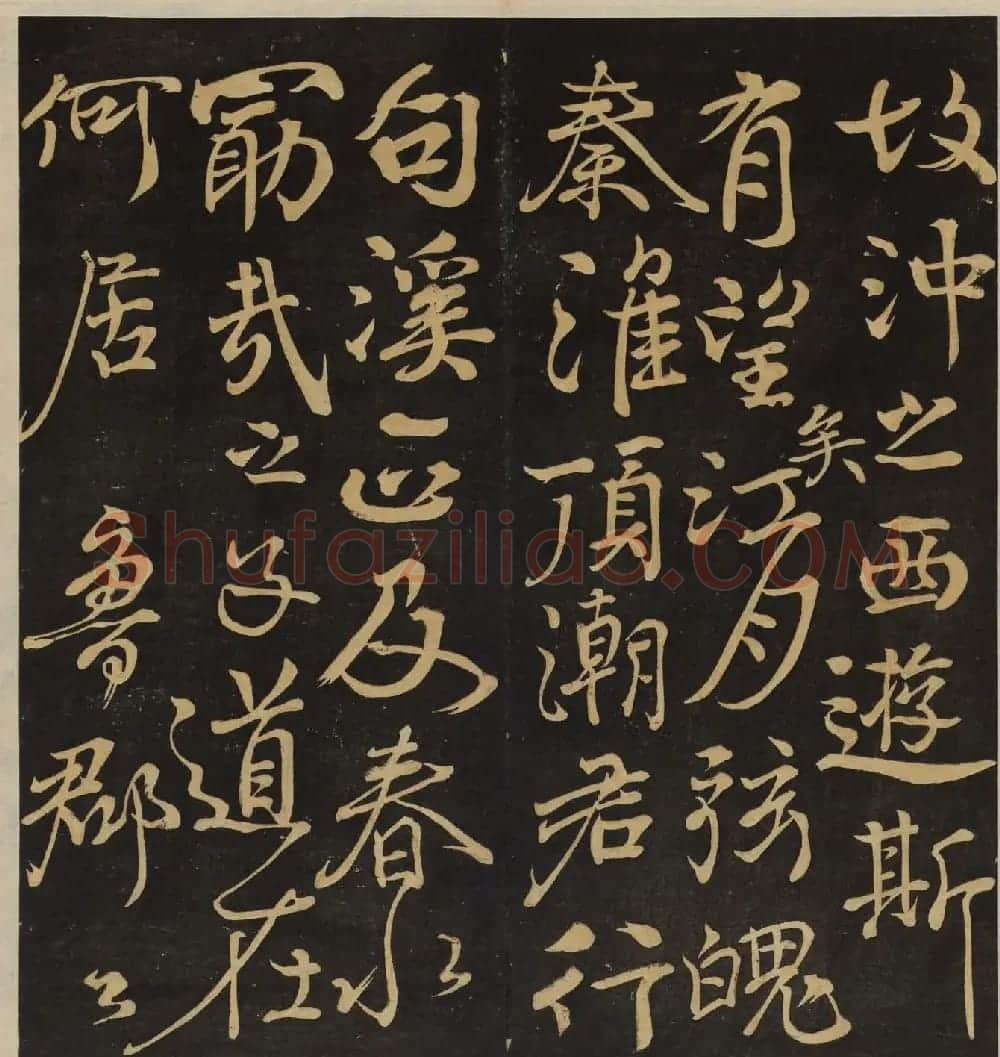 故沖之西遊斯
有望矣江月弦魄
秦淮頂潮君行
句溪正及春水
勗哉之子道在
何居魯郡公
Shufaziliao.COM